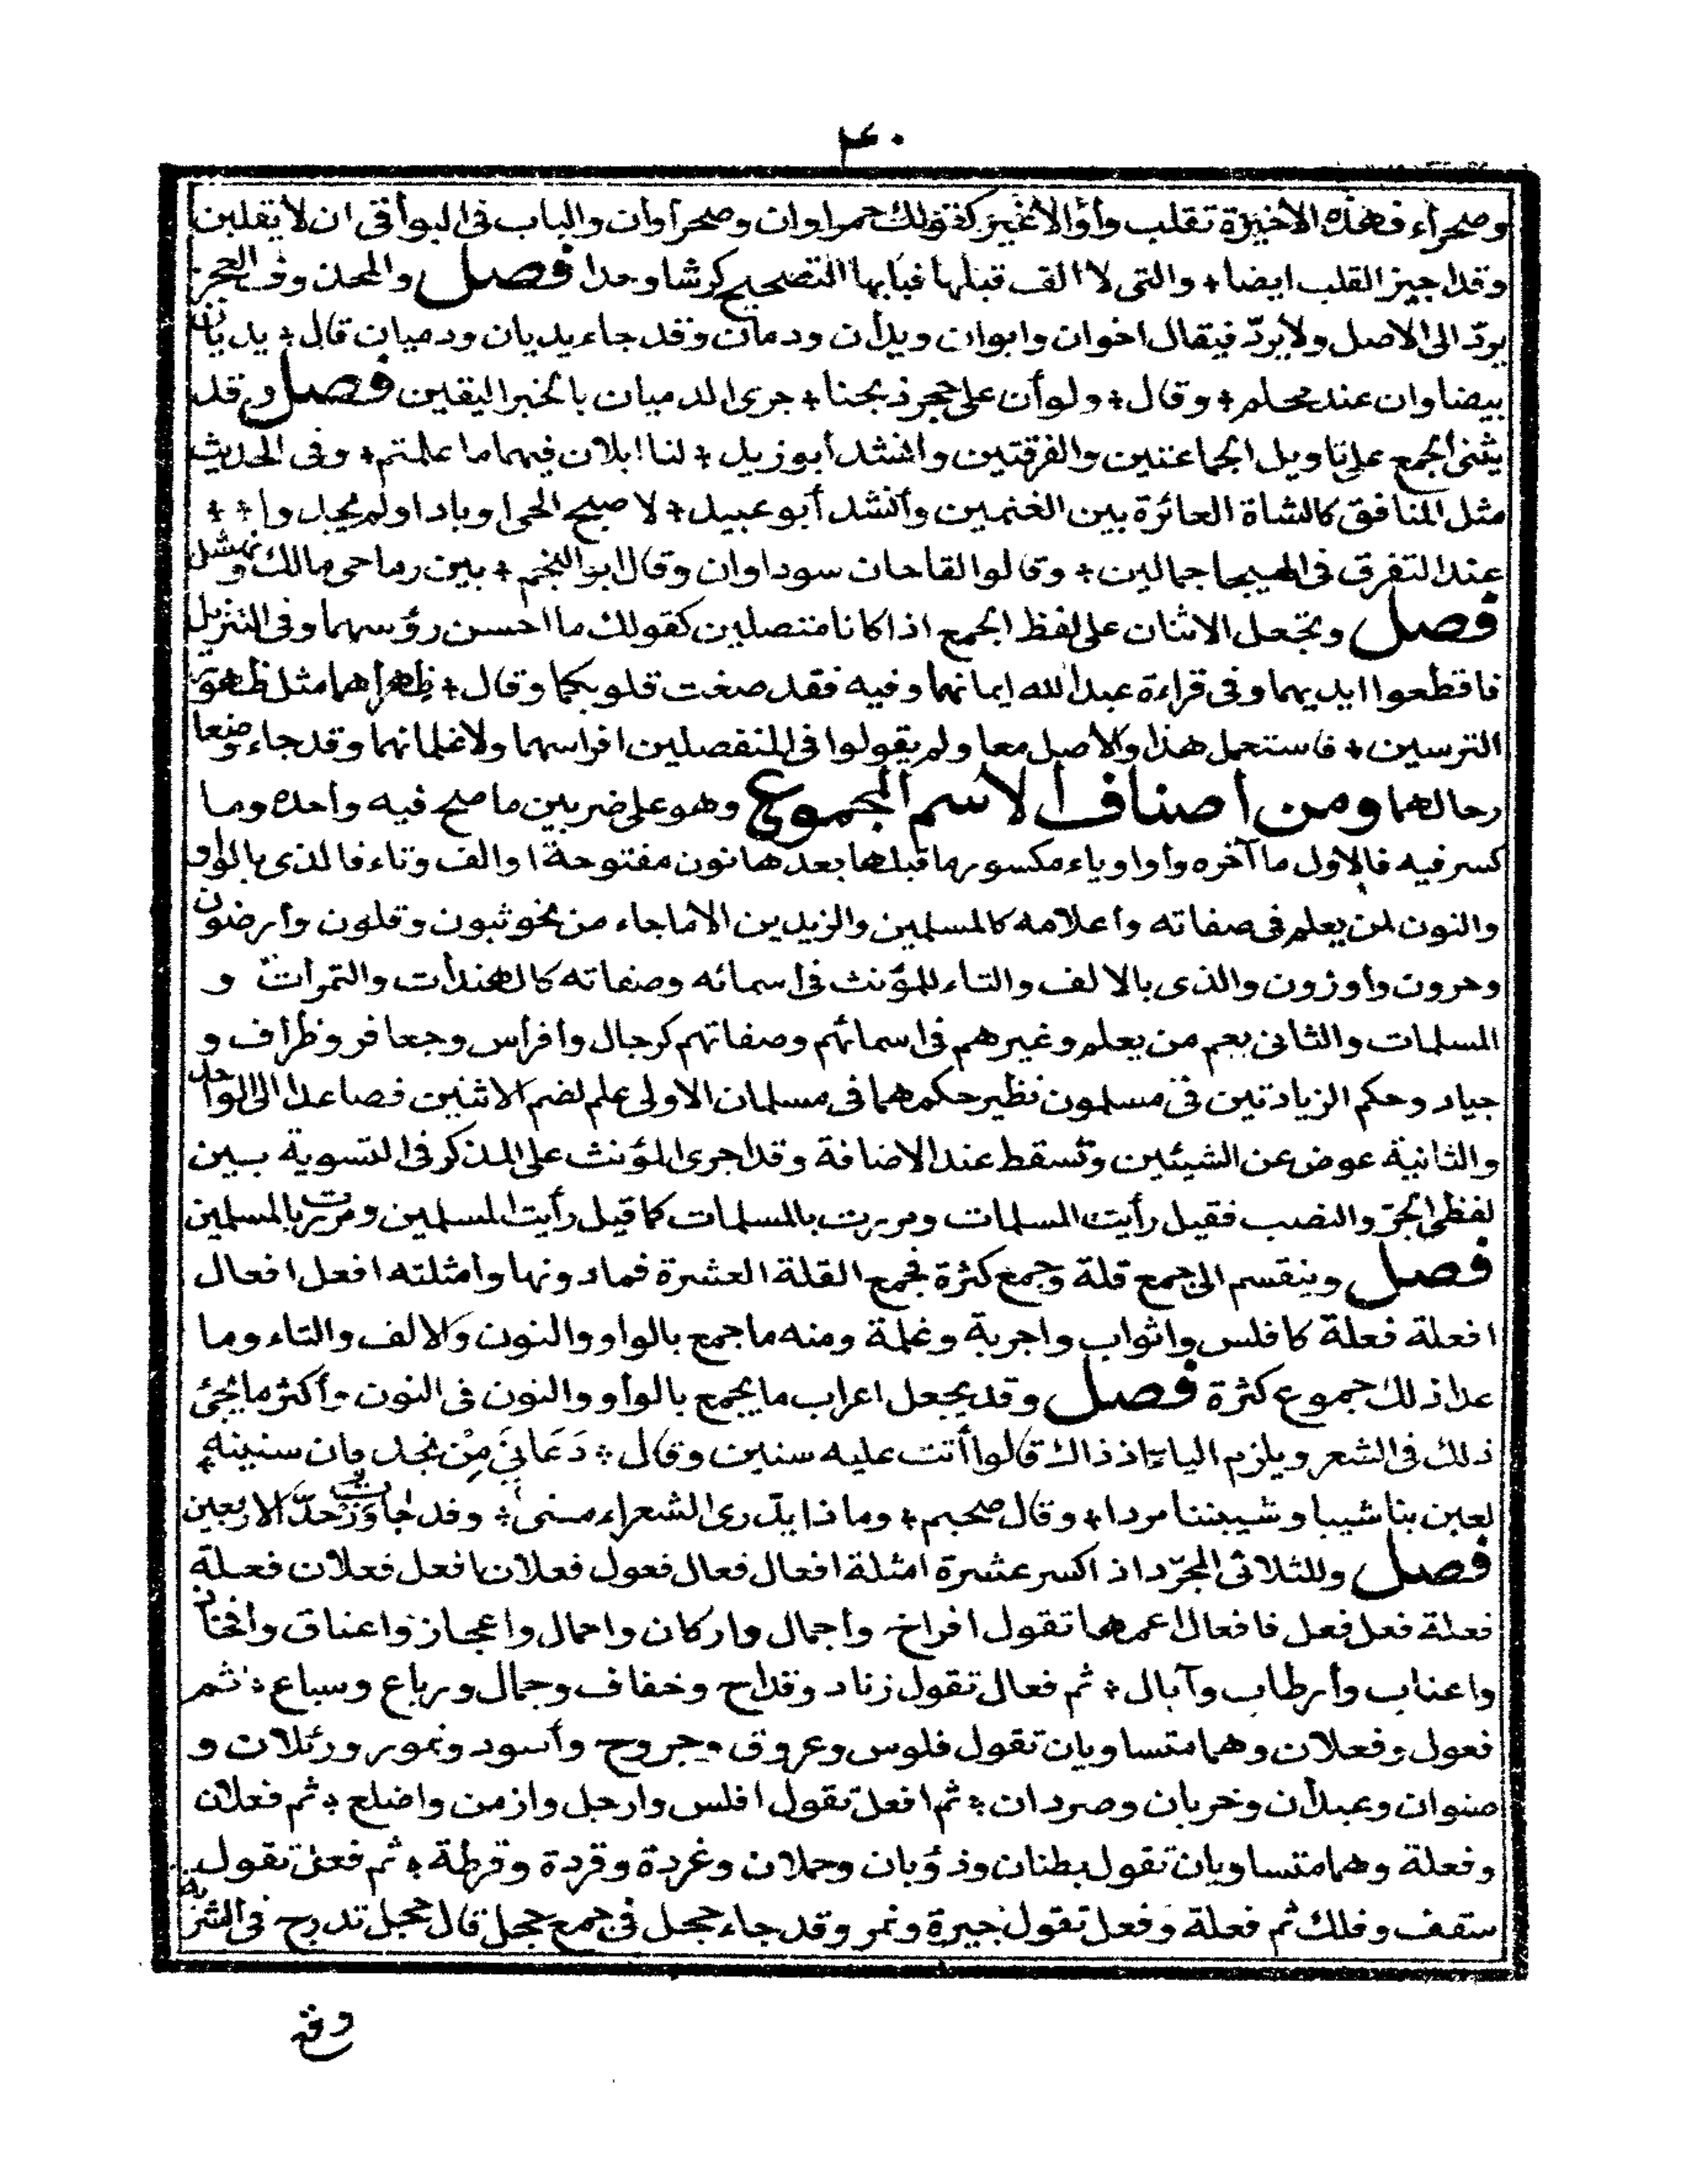 ۴۰
وصحراء فهذه الاخيرة تقلب واوا لا غير كقولك حمراوان وصحراوان والباب في البواقي ان لا يقلبن
وقد اجيز القلب ايضا ÷ والتي لا الف قبلها فبابها التصحيح كرشا وحدا فصل والمحذوف العجز
يردّ الى الاصل ولا يردّ فيقال اخوان وابوان ويدان ودمان وقد جاء يديان ودميان قال ÷ يديان
بيضاوان عند محلم ÷ وقال ÷ ولو أن على حجر ذبحنا ÷ جرى الدميان بالخبر اليقين فصل وقد
يثنى الجمع على تاويل الجماعتين والفرقتين وانشد ابو زيد ÷ لنا ابلان فيهما ما علمتم ÷ وفي الحديث
مثل المنافق كالشاة العائرة بين الغنمين وأنشد أبو عبيد ÷ لا صبح الحي اوبادا ولم يجدوا ÷ ÷
عند التفرق في الهيجا جمالين ÷ وقالوا لقاحان سوداوان وقال ابو النجم ÷ بين رماحي مالك ونهشل
فصل وتجعل الاثنان على لفظ الجمع اذا كانا متصلين كقولك ما احسن رؤسهما وفي التنزيل
فاقطعوا ايديهما وفي قراءة عبد الله ايمانهما وفيه فقد صغت قلوبكما وقال ÷ ظهراهما مثل ظهور
الترسين ÷ فاستعمل هذا والاصل معا ولم يقولوا في المنفصلين افراسهما ولا غلمانهما وقد جاء وضعا
رحالهما ومن أصناف الاسم المجموع وهو على ضربين ما صح فيه واحده وما
كسر فيه فالاول ما آخره واو او ياء مكسور ما قبلها بعدها نون مفتوحة او الف وتاء فالذي بالواو
والنون لمن يعلم في صفاته واعلامه كالمسلمين والزيدين الا ما جاء من نحو ثبون وقلون وارضون
وحرون واوزون والذي بالالف والتاء للمؤنث في اسمائه وصفاته كالهندات والتمرات و
المسلمات والثاني يعم من يعلم وغيرهم في اسمائهم وصفاتهم كرجال وافراس وجعافر وظراف و
جياد وحكم الزيادتين في مسلمون نظير حكمهما في مسلمان الاولى علم لضم الاثنين فصاعدا الى الواحد
والثانية عوض عن الشيئين وتسقط عند الاضافة وقد اجرى المؤنث على المذكر في التسوية بين
لفظي الجرّ والنصب فقيل رأيت المسلمات ومررت بالمسلمات كما قيل رأيت المسلمين ومررت بالمسلمين
فصل وينقسم الى جمع قلة وجمع كثرة فجمع القلة العشرة فما دونها وامثلته افعل افعال
افعلة فعلة كافلس واثواب واجربة وغلمة ومنه ما جمع بالواو والنون والالف والتاء وما
عدا ذلك جموع كثرة فصل وقد يجعل اعراب ما يجمع بالواو والنون في النون واكثر ما يجئ
ذلك في الشعر ويلزم الياء اذ ذاك قالوا أتت عليه سنين وقال ÷ دَعَانِيَ مِنْ نجد فان سنينه ÷
لعبن بنا شيبا وشيبننا مردا ÷ وقال سحيم ÷ وما ذا يدّري الشعراء مني ÷ وقد جاوزت حدّ الاربعين
فصل وللثلاثي المجرّد اذ اكسر عشرة امثلة افعال فعال فعول فعلان افعل فعلان فعلة
فعلة فعل فعل فافعال اعمها تقول افراخ واجمال واركان واحمال واعجاز واعناق وافخاذ
واعناب وأرطاب وآبال ÷ ثم فعال تقول زناد وقداح وخفاف وجمال ورباع وسباع ÷ ثم
فعول وفعلان وهما متساويان تقول فلوس وعروق وجروح وأسود ونمور ورئلان و
صنوان وعبدان وخربان وصردان ÷ ثم افعل تقول افلس وارجل وازمن واضلع ÷ ثم فعلان
وفعلة وهما متساويان تقول بطنان وذؤبان وحملان وغردة وقردة وقرطة ÷ ثم فعل تقول
سقف وفلك ثم فعلة وفعل تقول جيرة ونمر وقد جاء حجلى في جمع حجل قال حجلى تدرج في الشربة
وفي